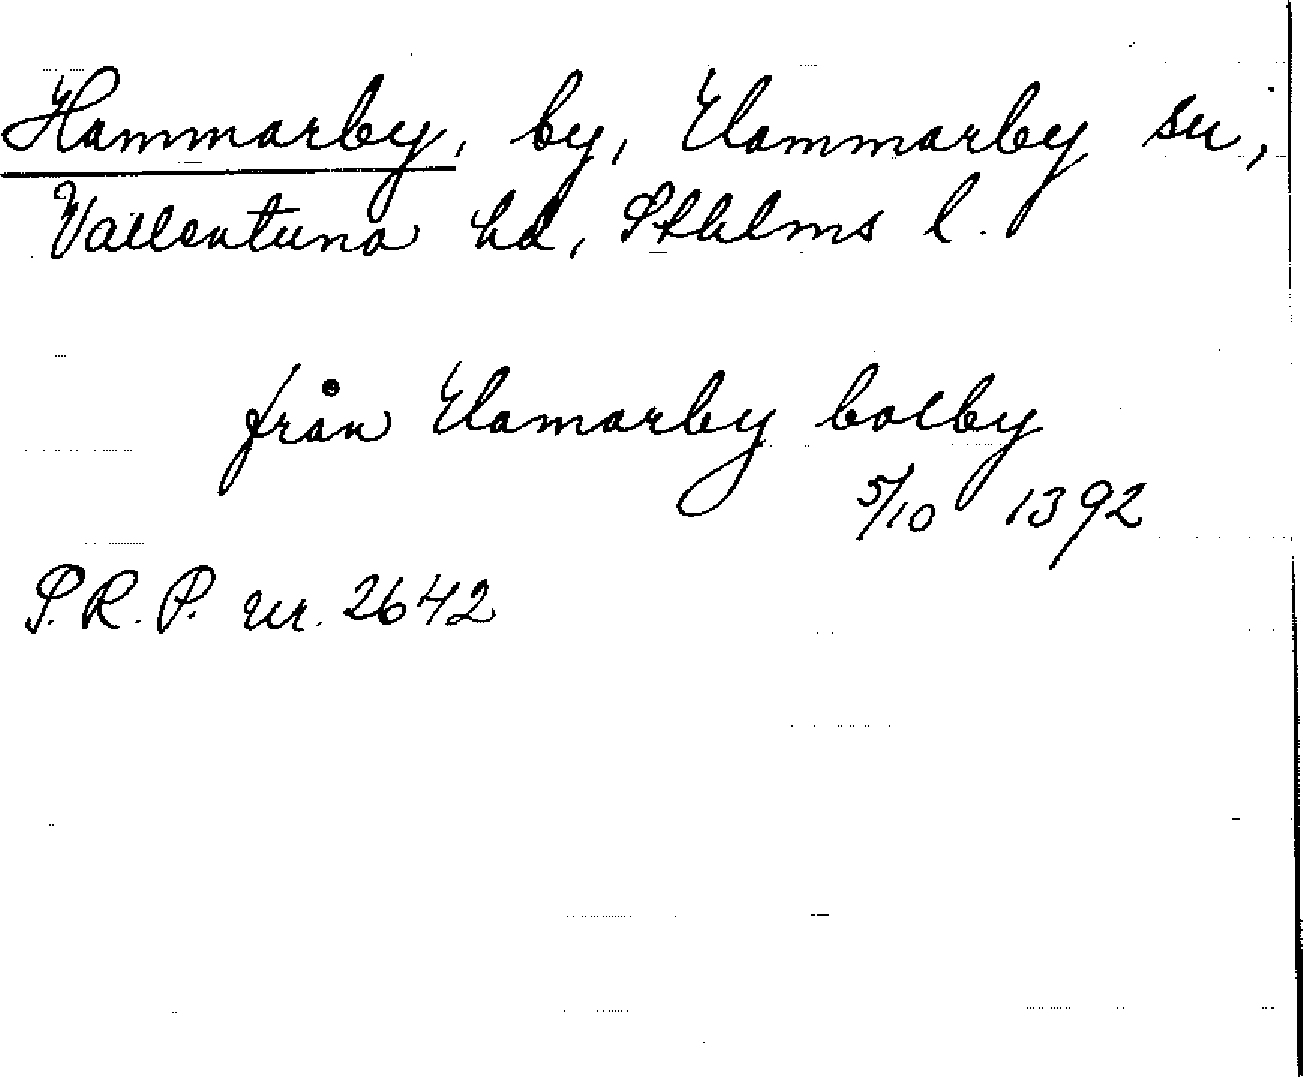 Hammarby, by, Hammarby sn,
Vallentuna hd, Sthlms l.
från Hamarby bolby
5/10 1392
S.R.P. nr. 2642